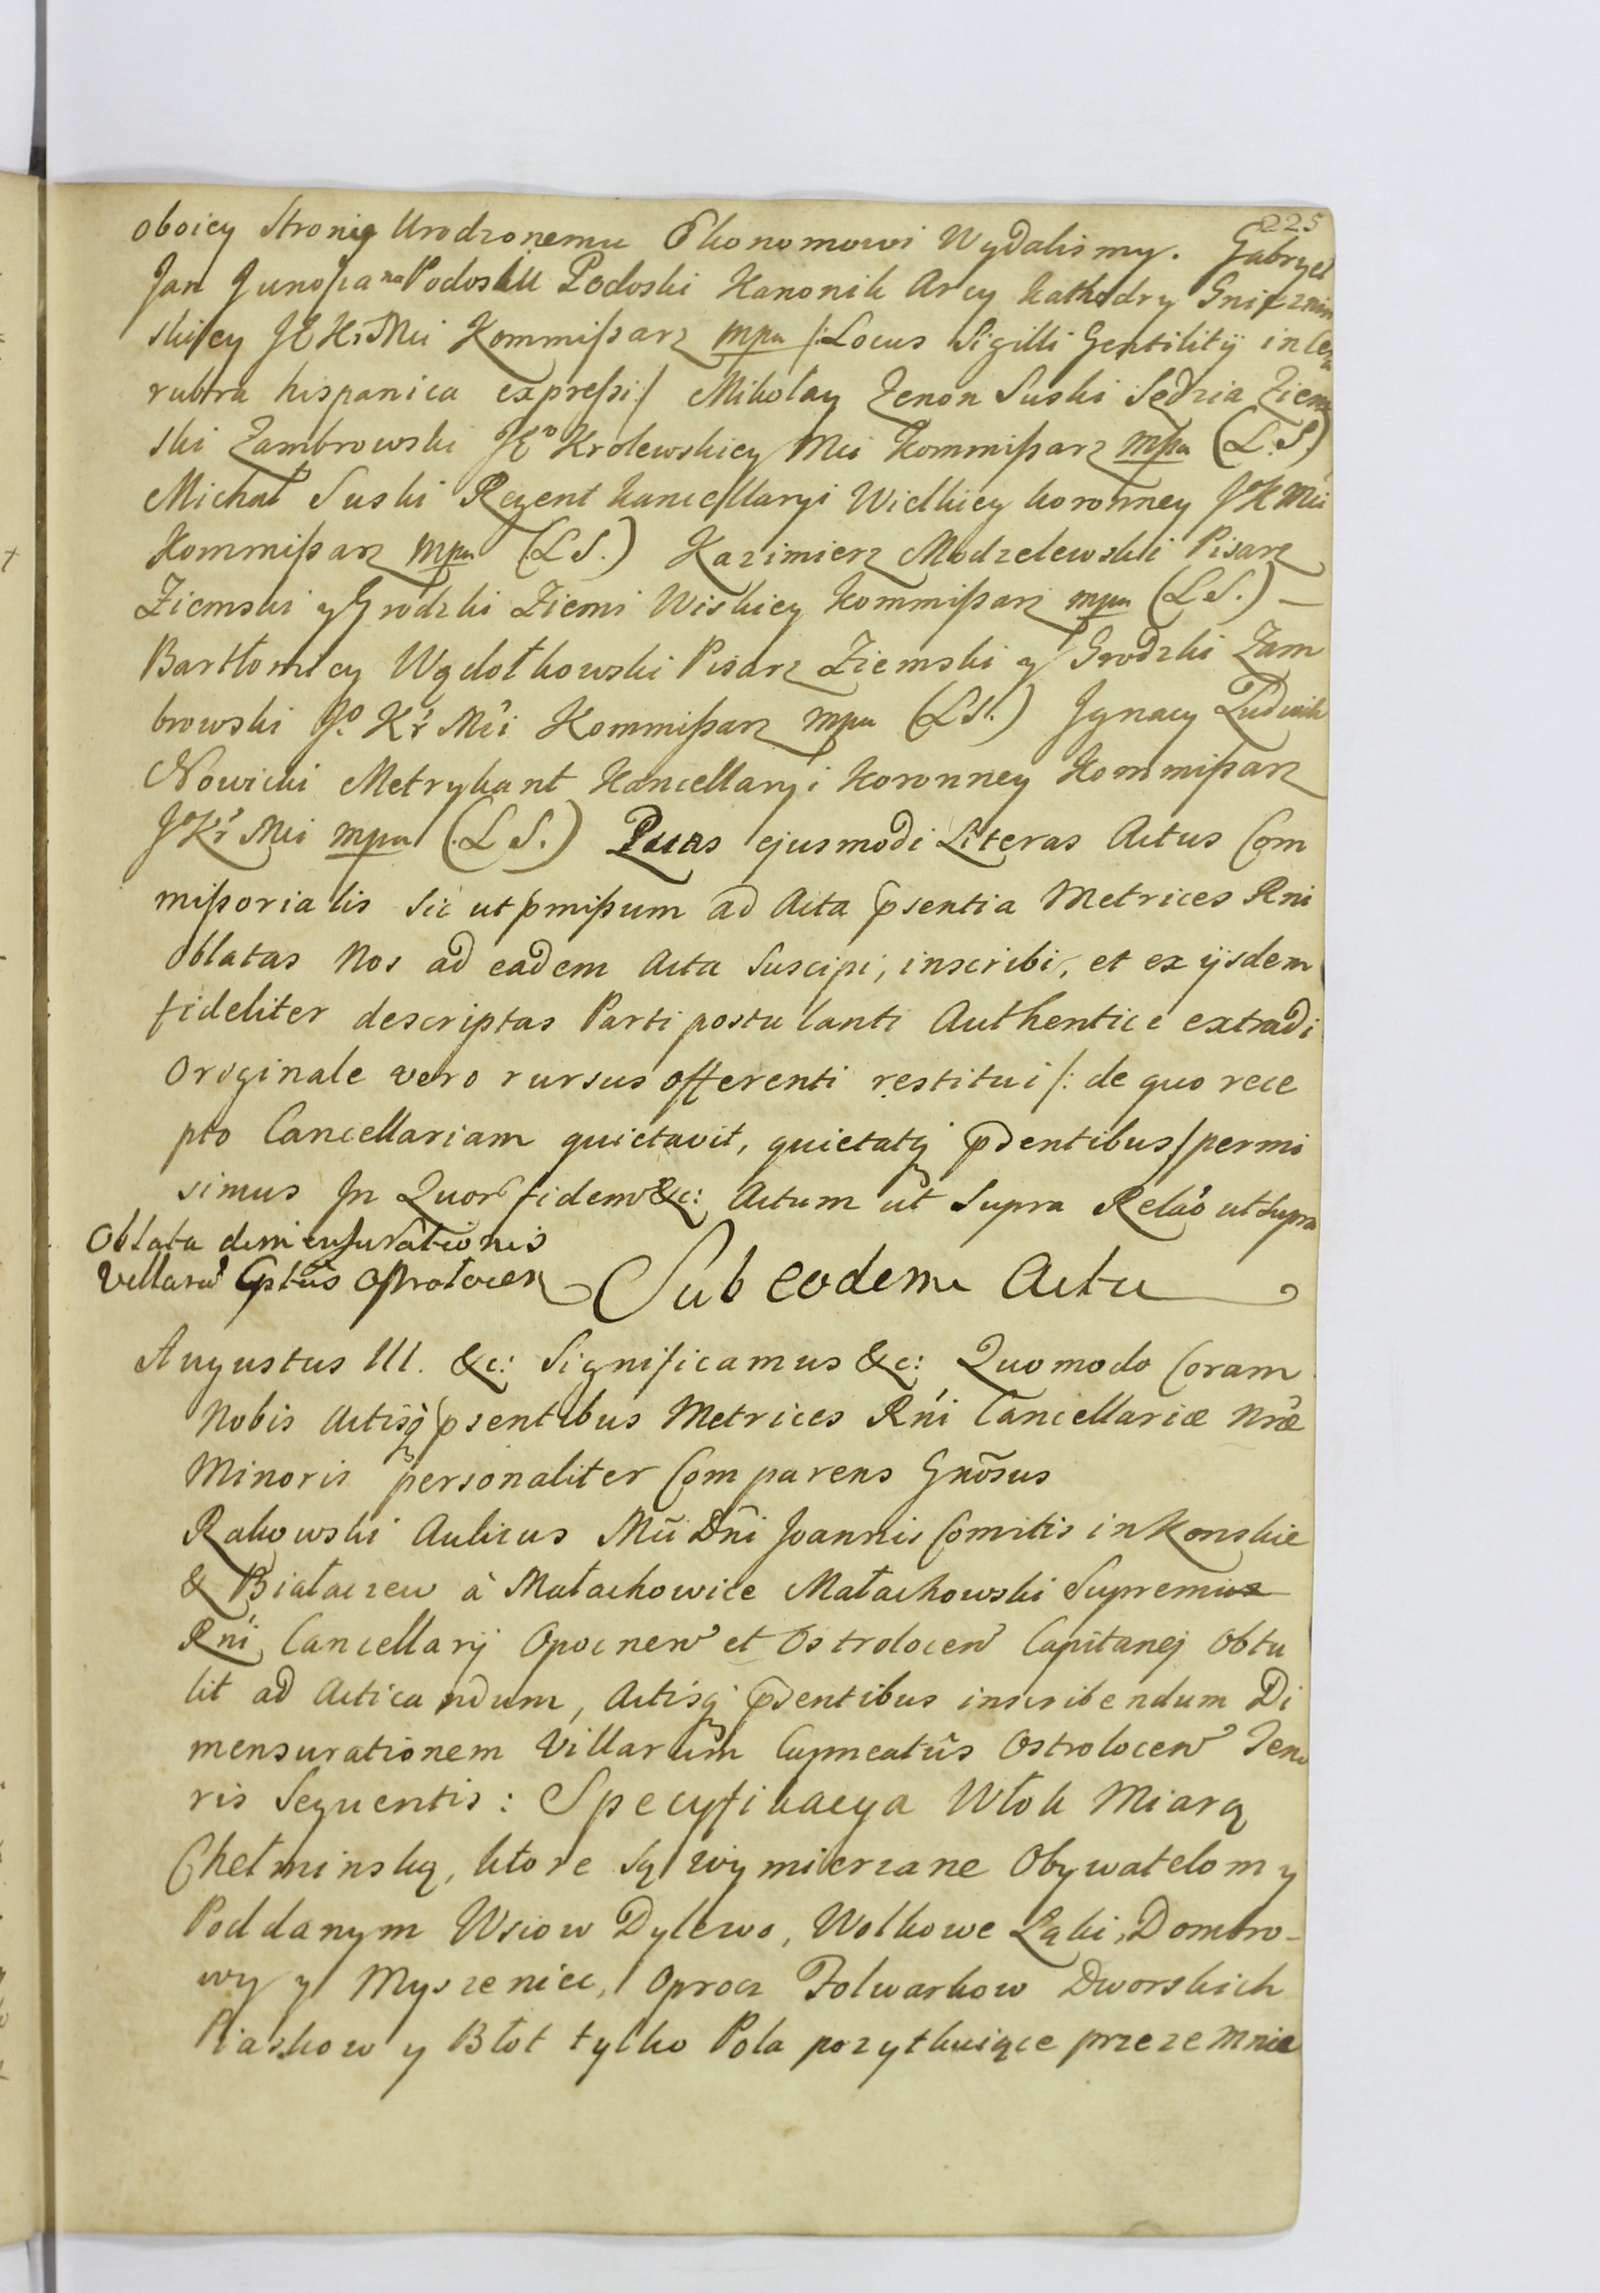 225
oboiey Stronie Urodzonemu Ekonomowi Wydalismy. Gabryel
Jan Junosza na Podosku Podoski Kanonik Arcy Kathedry Gnieznin
skiey JE Kr Mci Kommißarz mpu /: Locus Sigilli Gentilitij in Cera
rubra hispanica expreßi :/ Mikołay Zenon Suski Sędzia Ziem
ski Zambrowski JEo Krolewskiey Mci Kommißarz mpu (L.S.)
Michał Suski Regent Kancellaryi Wielkiey koronney JoK Mci
Kommißarz mpu (L S.) Kazimierz Modzelewski Pisarz
Ziemski y Grodzki Ziemi Wiskiey Kommißarz mpu (L S.) —
Bartłomiey Wądołkowski Pisarz Ziemski y Grodzki Zam
browski Jo. Kr Mci Kommißarz mpu (L S.) Jgnacy Ludwik
Nowicki Metrykant Kancellaryi Koronney Kommißarz
JoKr Mci mpu (L S.) Quas ejusmodi Literas Actus Com
mißorialis sic ut pmißum ad Acta psentia Metrices Rni
oblatas Nos ad eadem Acta Suscipi, inscribi, et ex ijsdem
fideliter descriptas Parti postulanti Authentice extradi
Originale vero rursus offerenti restitui /: de quo rece
pto Cancellariam quietavit, quietatq psentibus :/ permi
simus Jn Quor fidem &c: Actum ut Supra Relão ut supra
Oblata dimensurationis
Villarū Cptûs Ostrołocen
Sub eodem Actu
Augustus III. &c: Significamus &c: Quomodo Coram
Nobis Actisq psentibus Metrices Rńi Cancellariæ Nræ
Minoris personaliter Comparens Gnōsus
Rakowski Aulicus Mci Dñi Joannis Comitis in Konskie
& Białaczew à Małachowice Małachowski Supremi
Rńi Cancellarij Opocnen et Ostrolocen Capitanej Obtu
lit ad Acticandum, Actisq psentibus inscribendum Di
mensurationem Villarum Capneatûs Ostrolocen Teno
ris Sequentis: Specyfikacya Włok Miarą
Chełminską, ktore są wymierzane Obywatelom y
Poddanym Wsiow Dylewo, Wolkowe Łąki, Dombro-
wy y Myszeniec, oprocz Folwarkow Dworskich
Piaskow y Błot tylko Pola pozytkuiące przezemnie